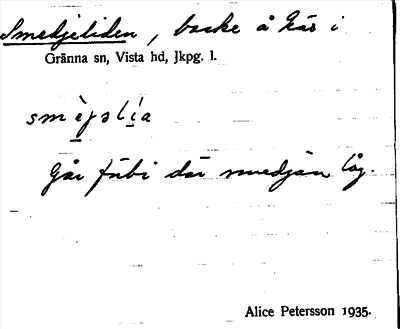 Smedjeliden, backe å Kås i
Gränna sn, Vista hd, Jkpg. l.
smèjəlía
Går förbi där smedjan låg.
Alice Petersson 1935.